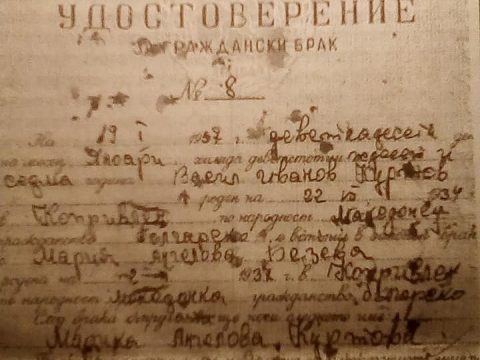 УДОСТОВЕРЕНИЕ
ЗА ГРАЖДАНСКИ БРАК
№ 8
На 19 I 1957 г. деветнадесети
Януари хиляда деветстотин и
седма година Васил Иванов Куртов
роден на 22 1934
в Копривлен по народност Македонец
гражданство българско, и встъпи в брак
Мария Ангелова Везева
родена на 2 1937 г. в Копривлен
по народност македонка гражданство българско
След брака съпругата ще носи името
Мария Ангелова Куртова